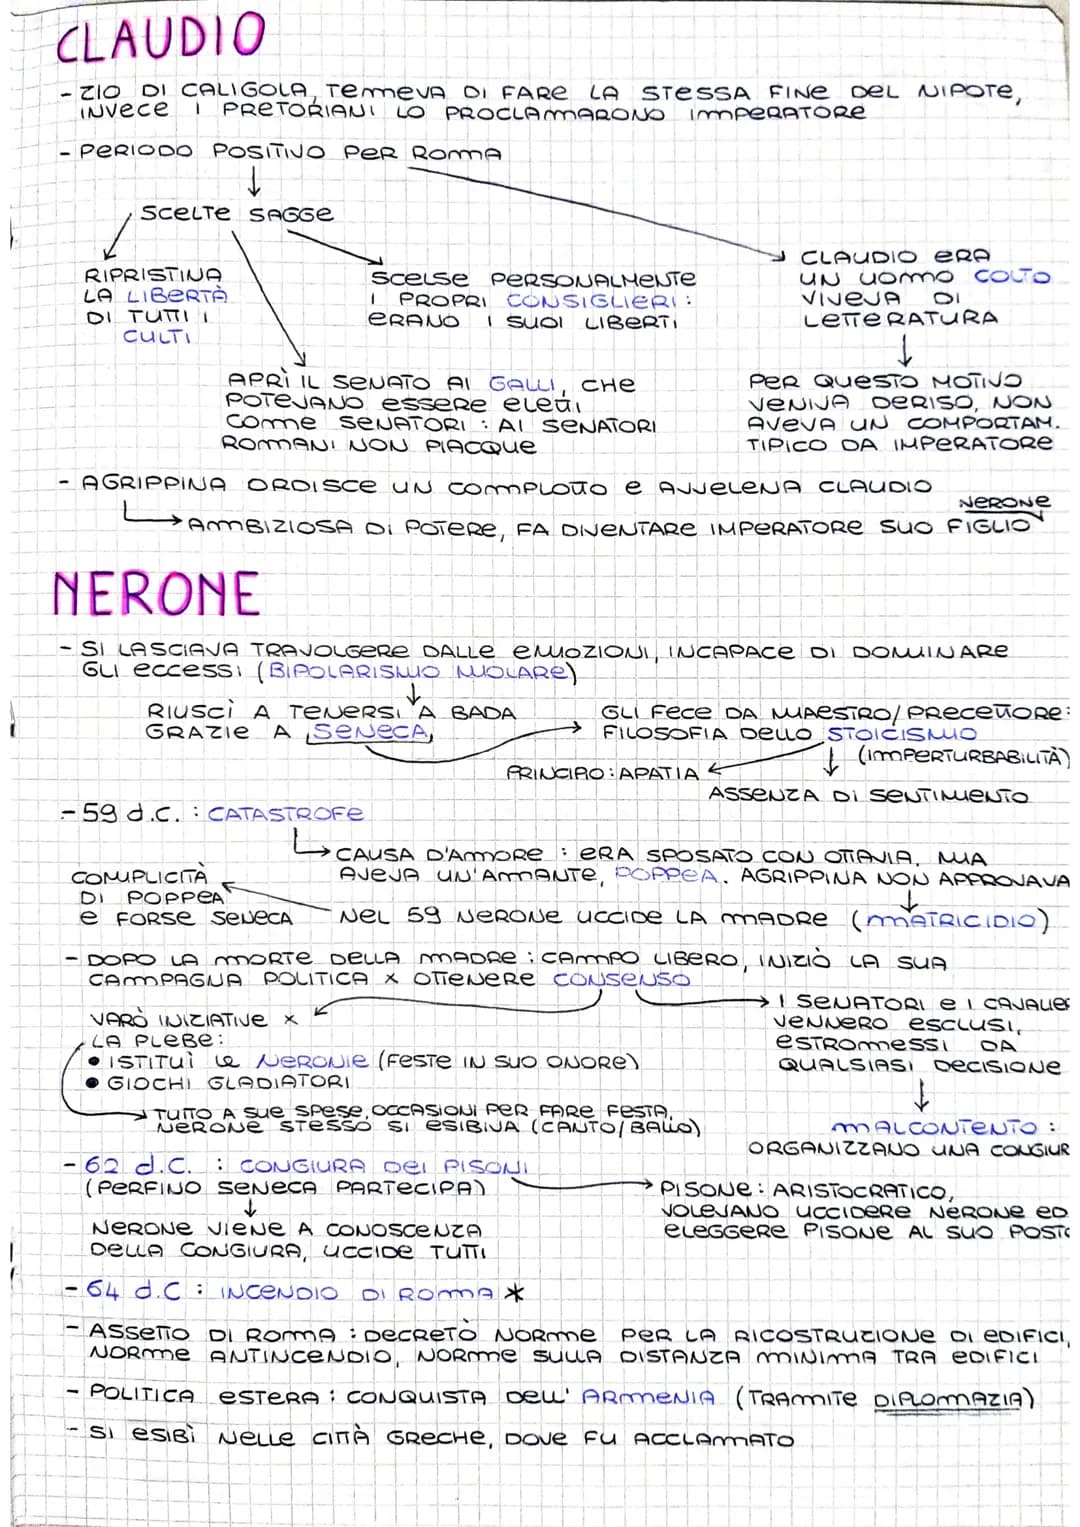 CLAUDIO
- ZIO DI CALIGOLA, TEMEVA DI FARE LA STESSA FINE DEL NIPOTE,
INVECE I PRETORIANI LO PROCLAMARONO IMPERATORE
- PERIODO POSITIVO PER ROMA
SCELTE SAGGE
RIPRISTINA
LA LIBERTÀ
DI TUTTI I
CULTI
SCELSE PERSONALMENTE
I PROPRI CONSIGLIERI:
ERANO I SUOI LIBERTI
CLAUDIO ERA
UN UOMO COLTO
VIVEVA DI
LETTERATURA
APRÌ IL SENATO AI GALLI, CHE
POTEVANO ESSERE ELETTI
COME SENATORI: AI SENATORI
ROMANI NON PIACQUE
PER QUESTO MOTIVO
VENIVA DERISO, NON
AVEVA UN COMPORTAM.
TIPICO DA IMPERATORE
- AGRIPPINA ORDISCE UN COMPLOTTO E AVVELENA CLAUDIO
NERONE
AMBIZIOSA DI POTERE, FA DIVENTARE IMPERATORE SUO FIGLIO
NERONE
- SI LASCIAVA TRAVOLGERE DALLE EMOZIONI, INCAPACE DI DOMINARE
GLI ECCESSI (BIPOLARISMO MOLARE)
RIUSCÌ A TENERSI A BADA
GRAZIE A SENECA
GLI FECE DA MAESTRO/PRECETTORE:
FILOSOFIA DELLO STOICISMO
(IMPERTURBABILITÀ)
PRINCIPIO: APATIA
ASSENZA DI SENTIMENTO
- 59 d.C. : CATASTROFE
CAUSA D'AMORE : ERA SPOSATO CON OTTAVIA, MA
AVEVA UN'AMANTE, POPPEA. AGRIPPINA NON APPROVAVA
COMPLICITÀ
DI POPPEA
E FORSE SENECA
NEL 59 NERONE UCCIDE LA MADRE (MATRICIDIO)
- DOPO LA MORTE DELLA MADRE : CAMPO LIBERO, INIZIÒ LA SUA
CAMPAGNA POLITICA X OTTENERE CONSENSO
VARÒ INIZIATIVE X
LA PLEBE:
• ISTITUÌ LE NERONIE (FESTE IN SUO ONORE)
• GIOCHI GLADIATORI
TUTTO A SUE SPESE, OCCASIONI PER FARE FESTA,
NERONE STESSO SI ESIBIVA (CANTO/BALLO)
I SENATORI E I CAVALIER
VENNERO ESCLUSI,
ESTROMESSI DA
QUALSIASI DECISIONE
MALCONTENTO :
ORGANIZZANO UNA CONGIUR
- 62 d.C. : CONGIURA DEI PISONI
(PERFINO SENECA PARTECIPA)
NERONE VIENE A CONOSCENZA
DELLA CONGIURA, UCCIDE TUTTI
PISONE: ARISTOCRATICO,
VOLEVANO UCCIDERE NERONE ED
ELEGGERE PISONE AL SUO POSTO
- 64 d.C : INCENDIO DI ROMA *
- ASSETTO DI ROMA : DECRETÒ NORME PER LA RICOSTRUZIONE DI EDIFICI,
NORME ANTINCENDIO, NORME SULLA DISTANZA MINIMA TRA EDIFICI
- POLITICA ESTERA : CONQUISTA DELL' ARMENIA (TRAMITE DIPLOMAZIA)
- SI ESIBÌ NELLE CITTÀ GRECHE, DOVE FU ACCLAMATO